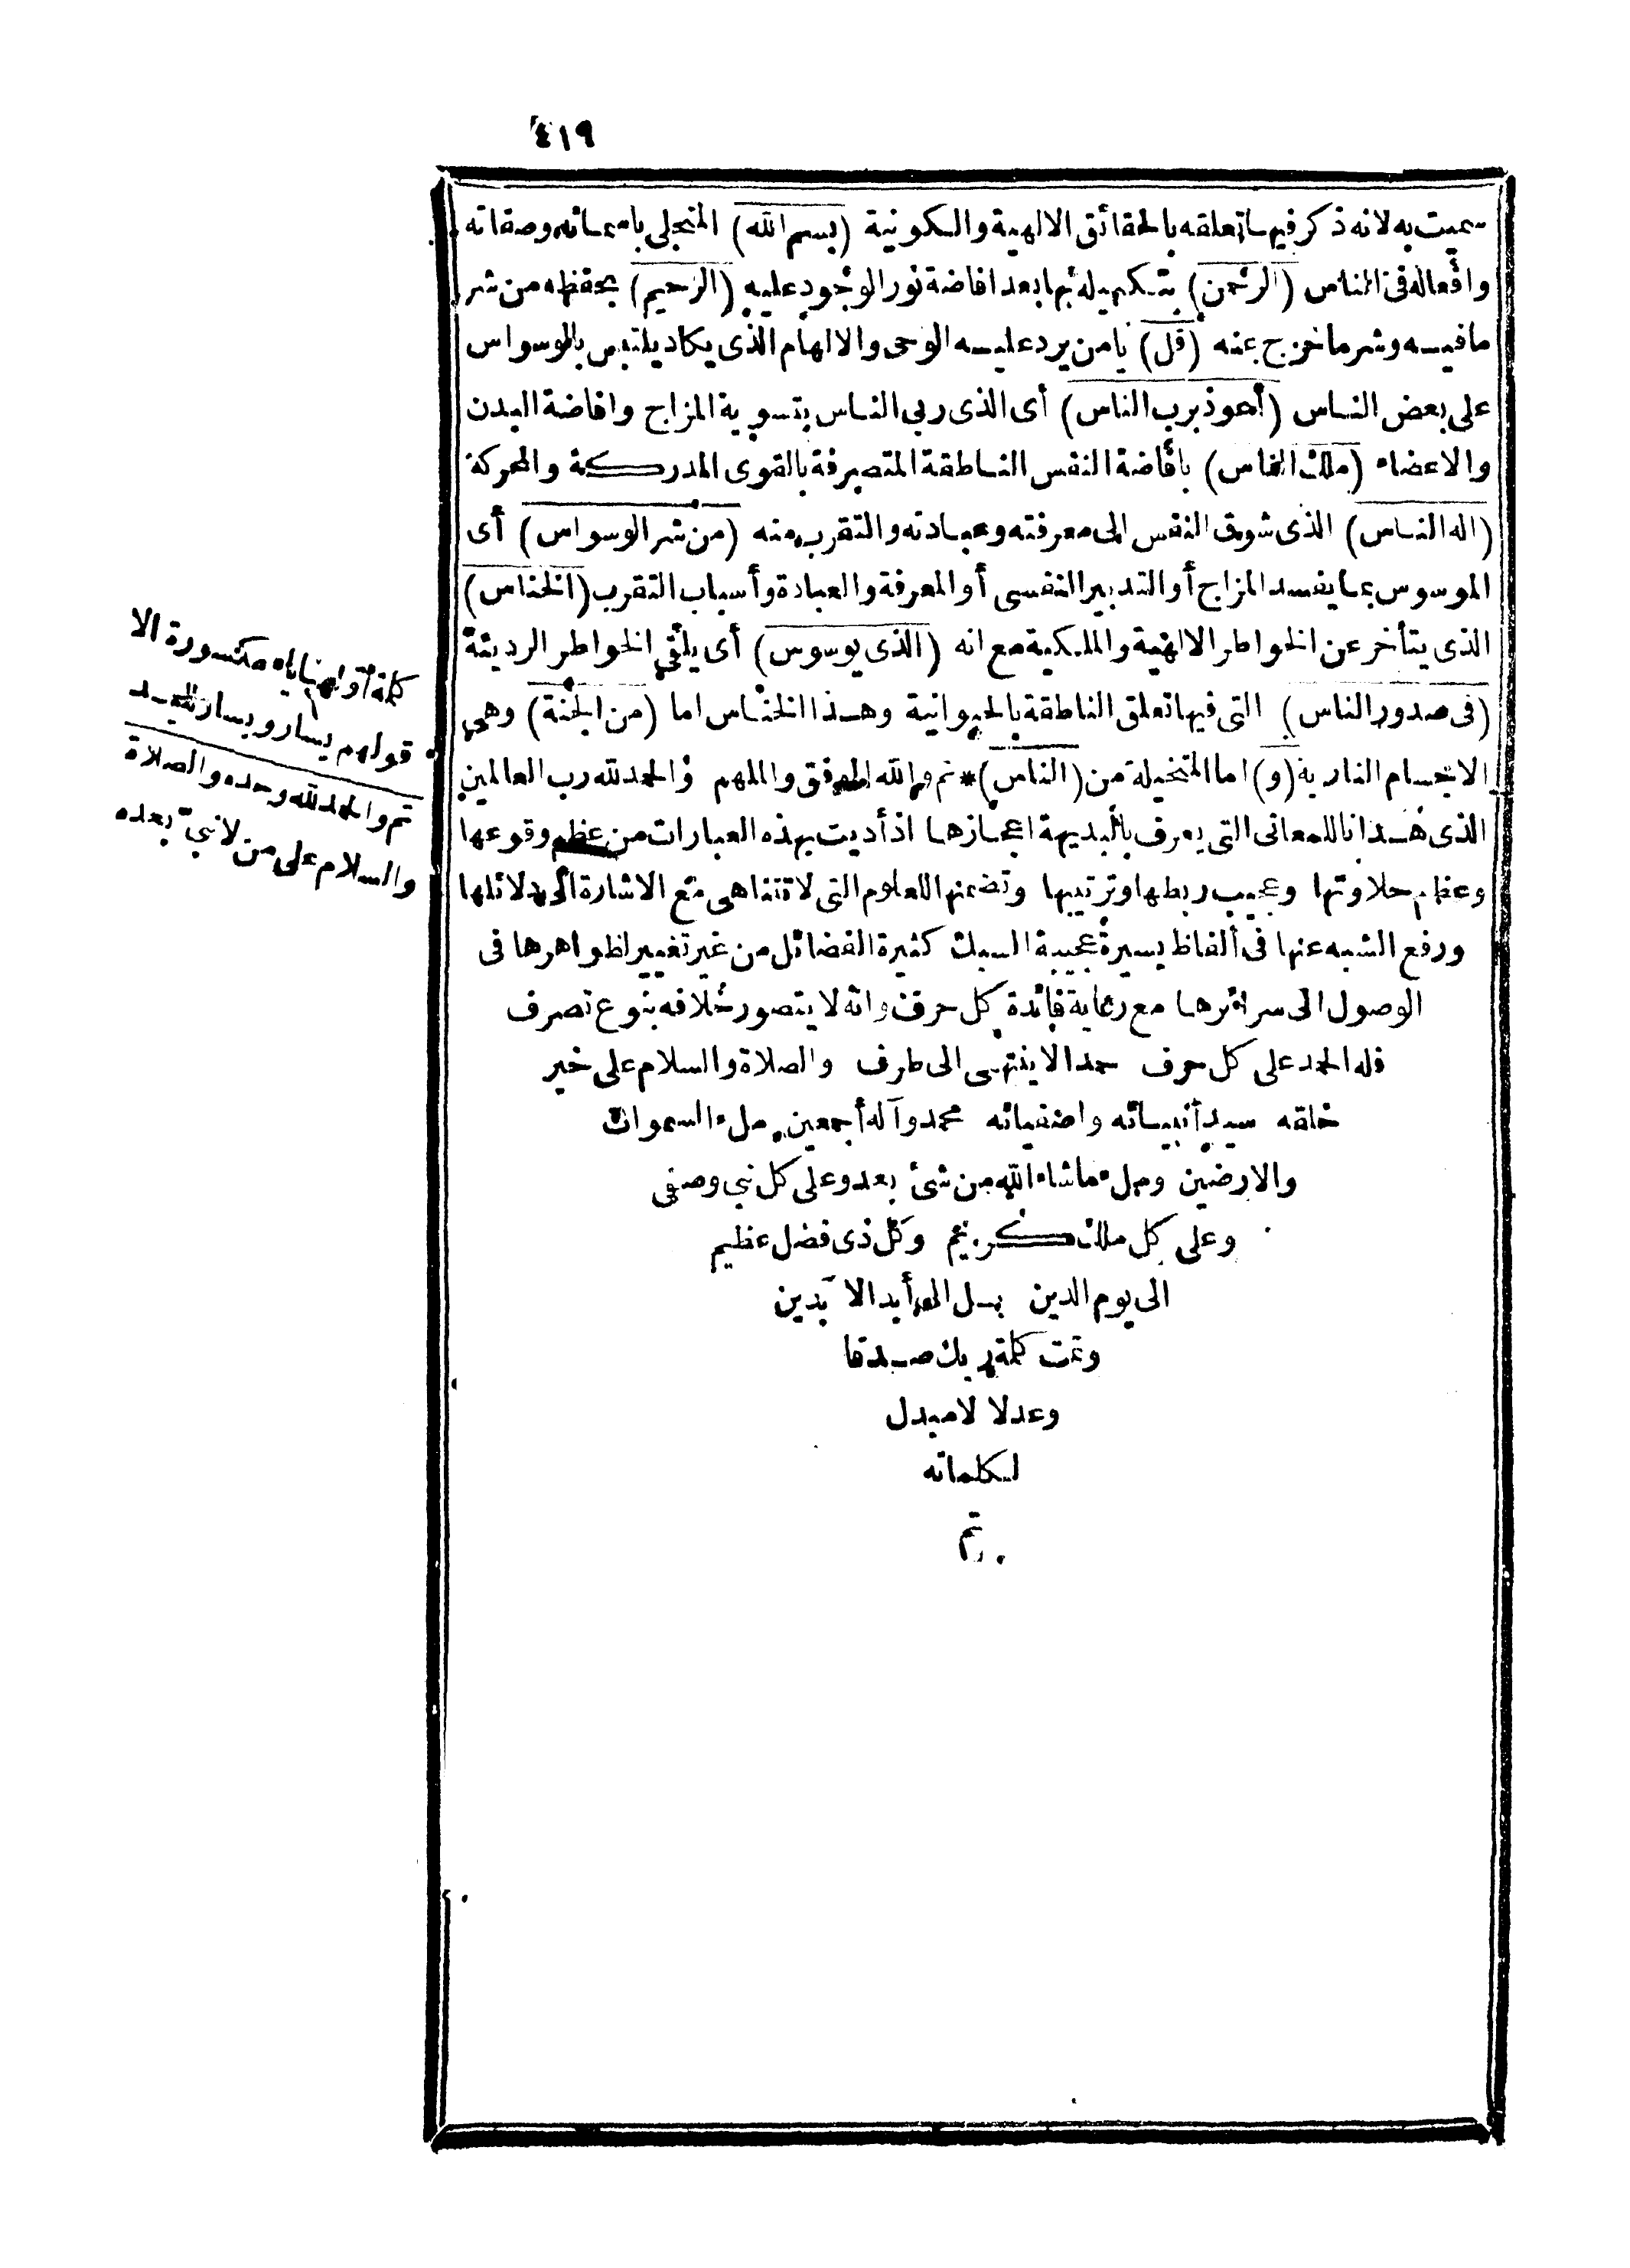 ٤١٩
سميت به لانه ذكر فيها تعلقه بالحقائق الالهية والكونية (بسم الله) المتجلى باسمائه وصفاته
وافعاله فى الناس (الرحمن) بتكميله بها بعد افاضة نور الوجود عليه (الرحيم) بحفظه من شر
ما فيه وشر ما خرج عنه (قل) يا من يرد عليه الوحى والالهام الذى يكاد يلتبس بالوسواس
على بعض الناس (أعوذ برب الناس) أى الذى ربى الناس بتسوية المزاج وافاضة البدن
والاعضاء (ملك الناس) بافاضة النفس الناطقة المتصرفة بالقوى المدركة والمحركة
(اله الناس) الذى شوق النفس الى معرفته وعبادته والتقرب منه (من شر الوسواس) أى
الموسوس بما يفسد المزاج أو التدبير النفسى أو المعرفة والعبادة وأسباب التقرب (الخناس)
الذى يتأخر عن الخواطر الالهية والملكية مع انه (الذى يوسوس) أى يلقى الخواطر الرديئة
(فى صدور الناس) التى فيها تعلق الناطقة بالحيوانية وهذا الخناس اما (من الجنة) وهى
الاجسام النارية (و) اما المتخيلة من (الناس) * تم والله الموفق والملهم والحمد لله رب العالمين
الذى هدانا للمعانى التى يعرف بالبديهة اعجازها اذ أديت بهذه العبارات من عظم وقوعها
وعظم حلاوتها وعجيب ربطها وترتيبها وتضمنها للعلوم التى لا تتناهى مع الاشارة الى دلائلها
ورفع الشبه عنها فى ألفاظ يسيرة عجيبة السبك كثيرة الفضائل من غير تغيير لظواهرها فى
الوصول الى سرائرها مع رعاية فائدة كل حرف وانه لا يتصور خلافه بنوع تصرف
فله الحمد على كل حرف حمدا لا ينتهى الى طرف والصلاة والسلام على خير
خلقه سيد أنبيائه واصفيائه محمد وآله أجمعين ملء السموات
والارضين وملء ما شاء الله من شئ بعد وعلى كل نبى وصفى
وعلى كل ملك كريم وكل ذى فضل عظيم
الى يوم الدين بل الى أبد الآبدين
وتمت كلمة ربك صدقا
وعدلا لا مبدل
لكلماته
تم
كلمة أولها ياء مكسورة الا
قولهم يسار ويسار لليد
تم والحمد لله وحده والصلاة
والسلام على من لا نبى بعده